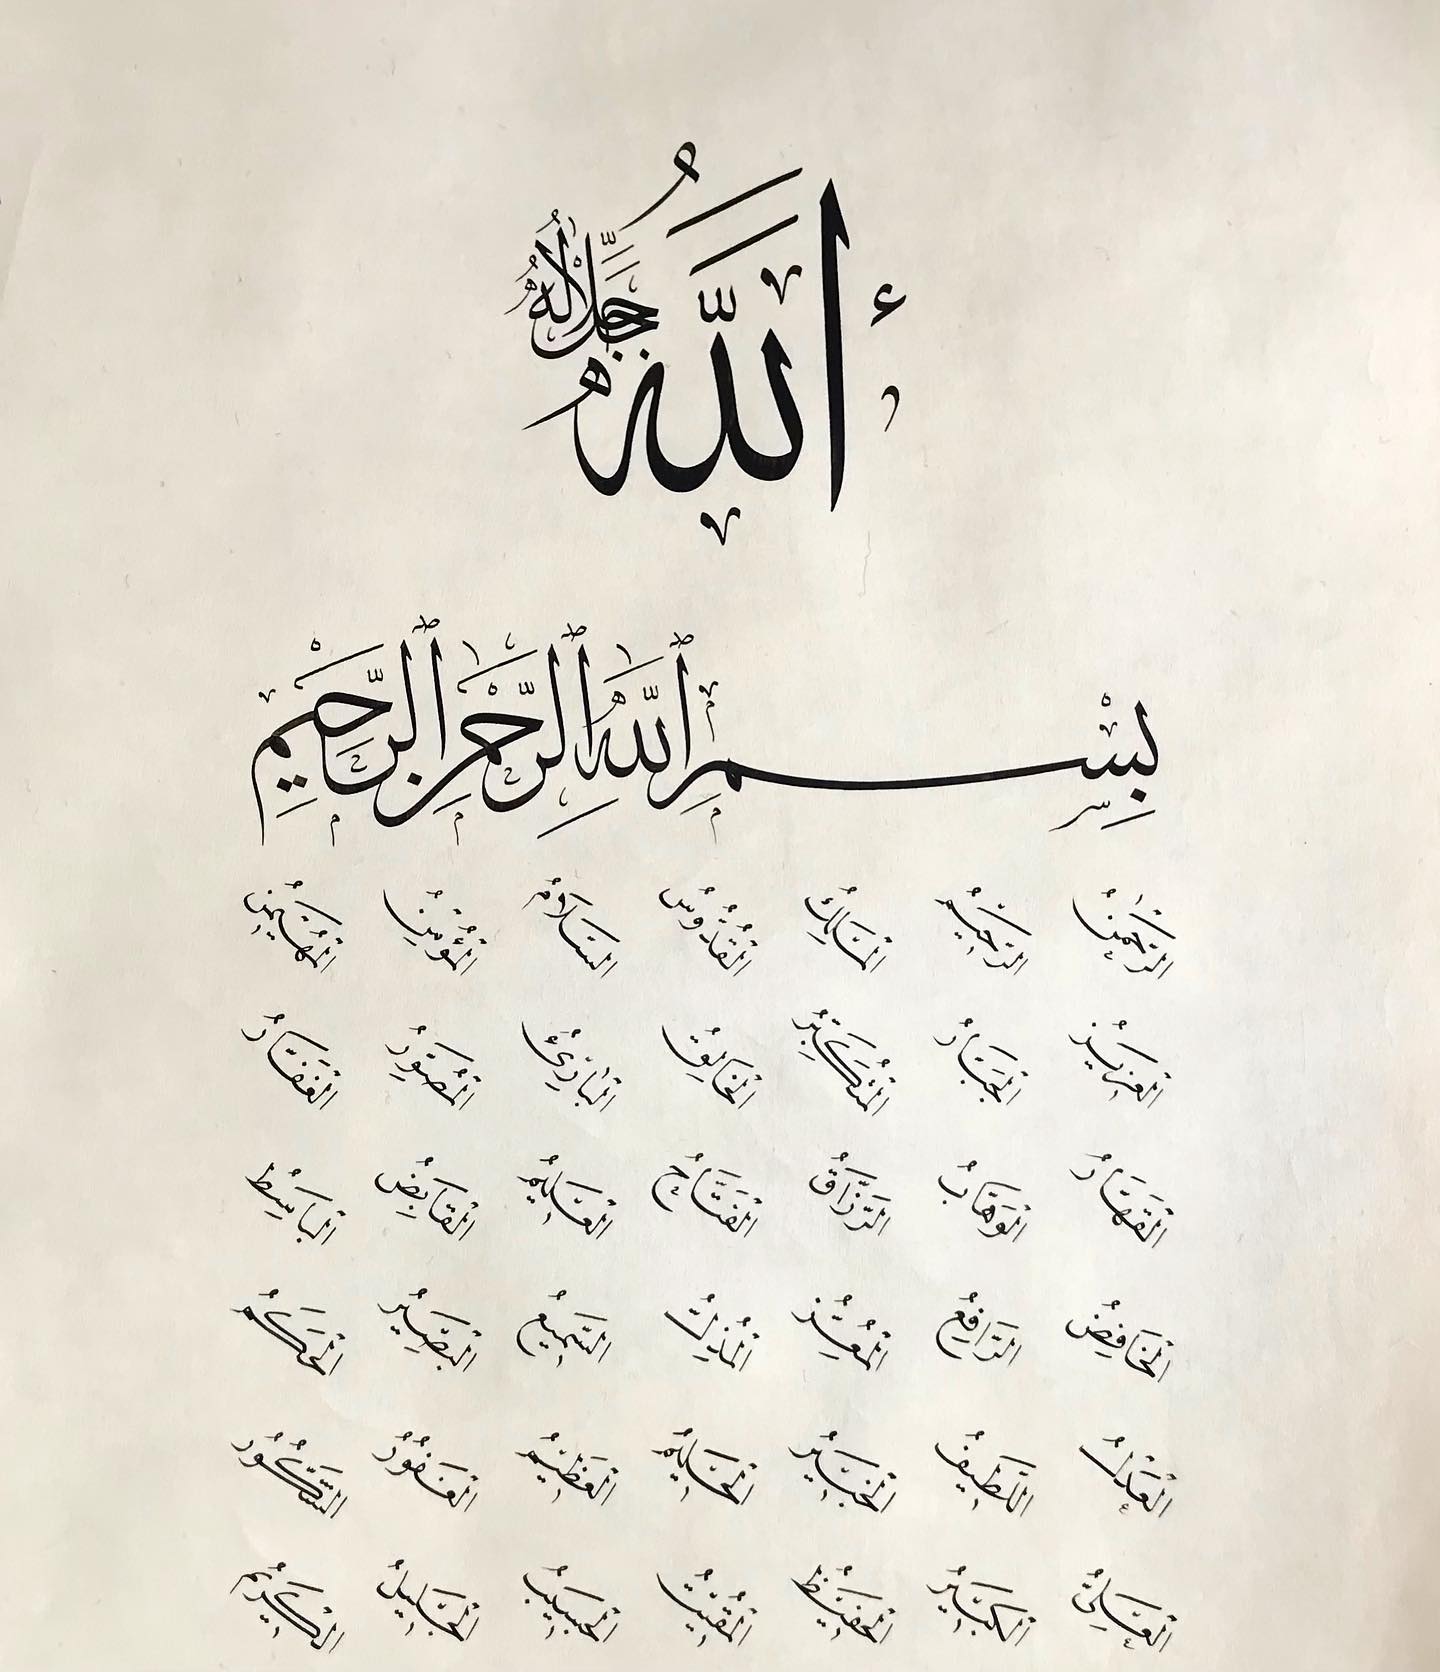 أَللّٰهُ جَلَّ جَلَالُهُ
بِسْمِ ٱللَّهِ ٱلرَّحْمٰنِ ٱلرَّحِيمِ
الرَّحْمٰنُ الرَّحِيمُ الْمَلِكُ الْقُدُّوسُ السَّلَامُ الْمُؤْمِنُ الْمُهَيْمِنُ
الْعَزِيزُ الْجَبَّارُ الْمُتَكَبِّرُ الْخَالِقُ الْبَارِئُ الْمُصَوِّرُ الْغَفَّارُ
الْقَهَّارُ الْوَهَّابُ الرَّزَّاقُ الْفَتَّاحُ الْعَلِيمُ الْقَابِضُ الْبَاسِطُ
الْخَافِضُ الرَّافِعُ الْمُعِزُّ الْمُذِلُّ السَّمِيعُ الْبَصِيرُ الْحَكَمُ
الْعَدْلُ اللَّطِيفُ الْخَبِيرُ الْحَلِيمُ الْعَظِيمُ الْغَفُورُ الشَّكُورُ
الْعَلِيُّ الْكَبِيرُ الْحَفِيظُ الْمُقِيتُ الْحَسِيبُ الْجَلِيلُ الْكَرِيمُ